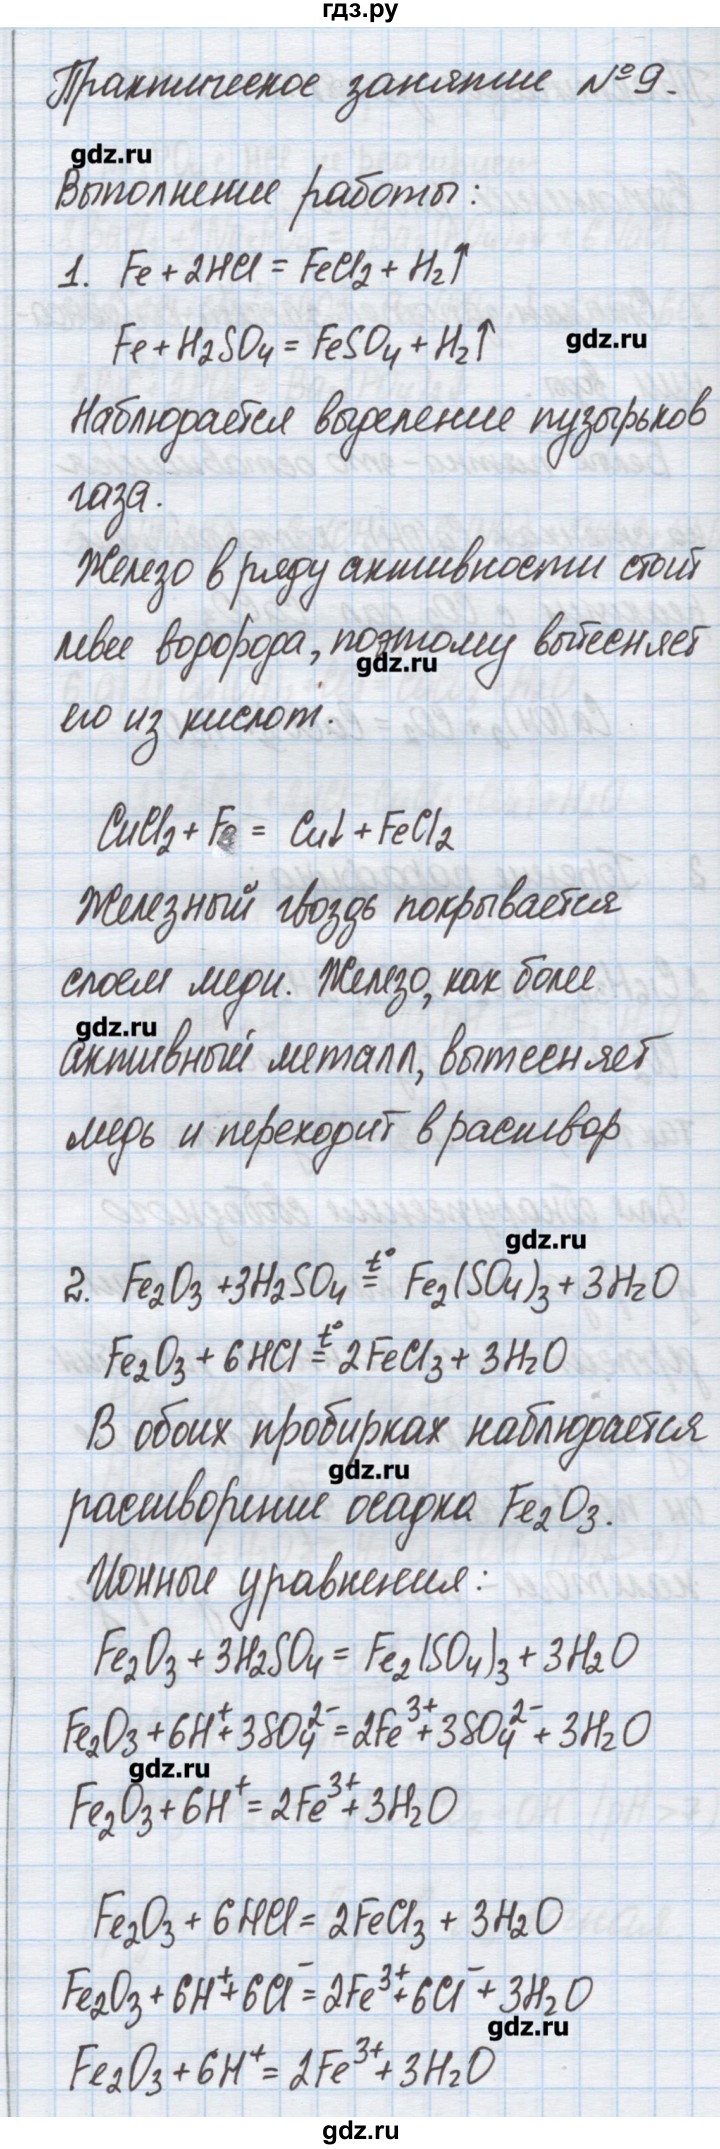 гдз.ру
Практическое занятие №9.
gdz.ru
Выполнение работы:
1. Fe + 2HCl = FeCl₂ + H₂↑
Fe + H₂SO₄ = FeSO₄ + H₂↑
gdz.ru
Наблюдается выделение пузырьков
газа.
Железо в ряду активности стоит
левее водорода, поэтому вытесняет
gdz.ru
его из кислот.
CuCl₂ + Fe = Cu↓ + FeCl₂
Железный гвоздь покрывается
слоем меди. Железо, как более
gdz.ru
активный металл, вытесняет
медь и переходит в раствор
gdz.ru
2. Fe₂O₃ + 3H₂SO₄ =(t°) Fe₂(SO₄)₃ + 3H₂O
Fe₂O₃ + 6HCl =(t°) 2FeCl₃ + 3H₂O
В обоих пробирках наблюдается
gdz.ru
растворение осадка Fe₂O₃.
Ионные уравнения:
Fe₂O₃ + 3H₂SO₄ = Fe₂(SO₄)₃ + 3H₂O
Fe₂O₃ + 6H⁺ + 3SO₄²⁻ = 2Fe³⁺ + 3SO₄²⁻ + 3H₂O
gdz.ru
Fe₂O₃ + 6H⁺ = 2Fe³⁺ + 3H₂O
Fe₂O₃ + 6HCl = 2FeCl₃ + 3H₂O
Fe₂O₃ + 6H⁺ + 6Cl⁻ = 2Fe³⁺ + 6Cl⁻ + 3H₂O
gdz.ru
Fe₂O₃ + 6H⁺ = 2Fe³⁺ + 3H₂O
gdz.ru